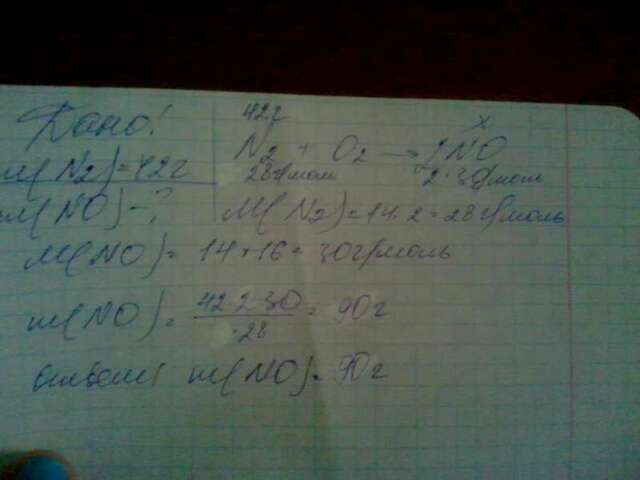 Дано!
42г x
m(N2)=42г N2 + O2 → 2NO
28г/моль 2·30г/моль
m(NO)-? M(N2)=14·2=28г/моль
M(NO)= 14+16=30г/моль
m(NO)= 42·2·30 = 90г
·28
ответ: m(NO)=90г